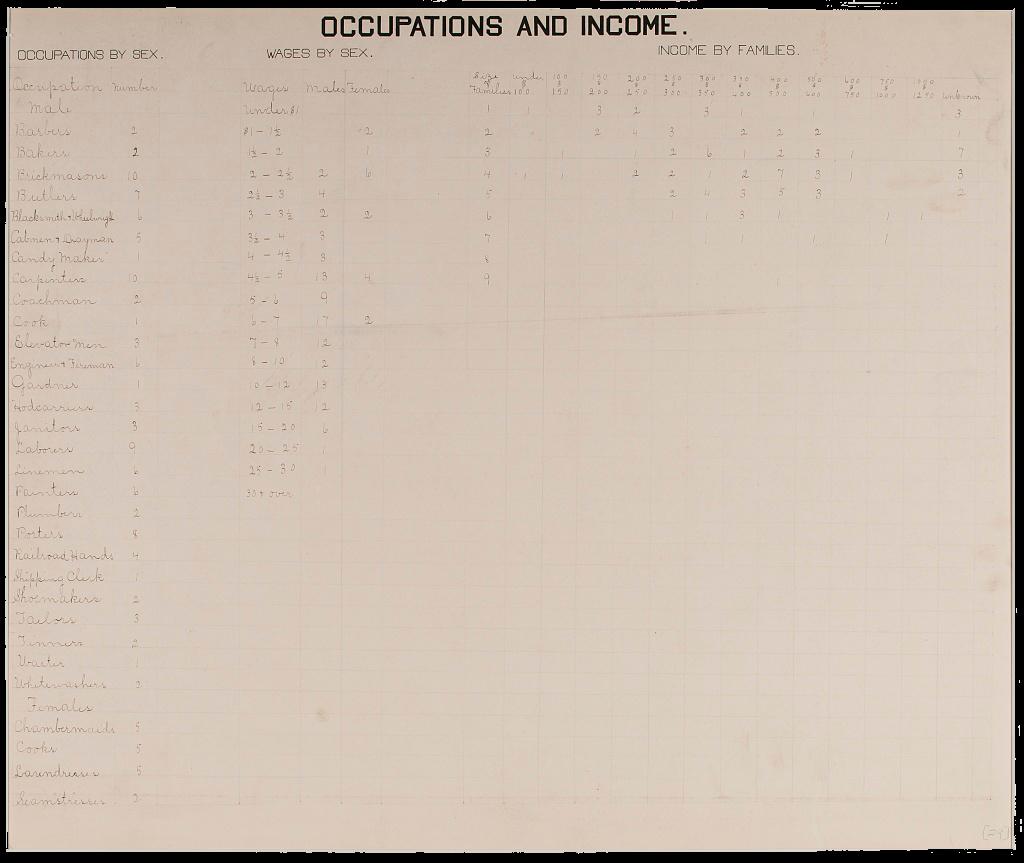 OCCUPATIONS AND INCOME.
OCCUPATIONS BY SEX. WAGES BY SEX. INCOME BY FAMILIES.
Occupation Number
Male
Barbers 2
Bakers 2
Brickmasons 10
Butlers 7
Blacksmith + 6
Cabmen + Drayman 5
Candy Maker 1
Carpenters 10
Coachman 2
Cook 1
Elevator Men 3
Engineer + Fireman 6
Gardner 1
Hodcarriers 3
Janitors 3
Laborers 9
Linemen 6
Painters 6
Plumbers 2
Porters 8
Railroad Hands 4
Shipping Clerk 1
Shoemakers 2
Tailors 3
Tinners 2
Waiter 1
Whitewashers 2
Females
Chambermaids 5
Cooks 5
Laundresses 5
Seamstresses 2
Wages Males Females
Under $1
$1 - 1½ 2
1½ - 2 1
2 - 2½ 2 6
2½ - 3 4
3 - 3½ 2 2
3½ - 4 3
4 - 4½ 3
4½ - 5 13 4
5 - 6 9
6 - 7 17 2
7 - 8 12
8 - 10 2
10 - 12 13
12 - 15 12
15 - 20 6
20 - 25 1
25 - 30 1
30 + over
Size Families under $100 100 $ 150 150 $ 200 200 $ 250 250 $ 300 300 $ 350 350 $ 400 400 $ 500 500 $ 600 600 $ 750 750 $ 1000 1000 $ 1250 Unknown
1 1 3 2 3 1 1 3
2 2 4 3 2 2 2 1
3 1 1 2 6 1 2 3 1 7
4 1 1 2 2 1 2 7 3 1 3
5 2 4 3 5 3 2
6 1 1 3 1 1 1
7 1 1 1 1
8
9 1